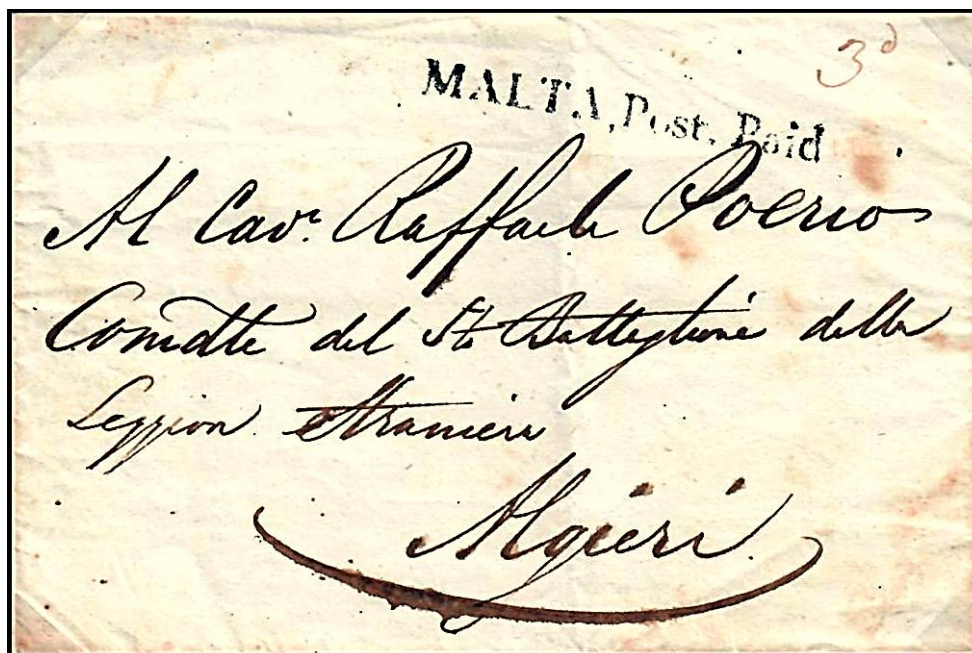 3d
MALTA, Post. Paid
Al Cavr. Raffaele Poerio
Comdte del 5to Battaglione della
Leggion Straniera
Algieri